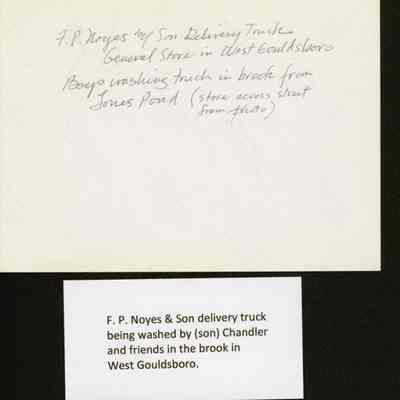 F. P. Noyes & Son Delivery Truck
General Store in West Gouldsboro
Boys washing truck in brook from
Jones Pond (store across street
from photo)
F. P. Noyes & Son delivery truck
being washed by (son) Chandler
and friends in the brook in
West Gouldsboro.